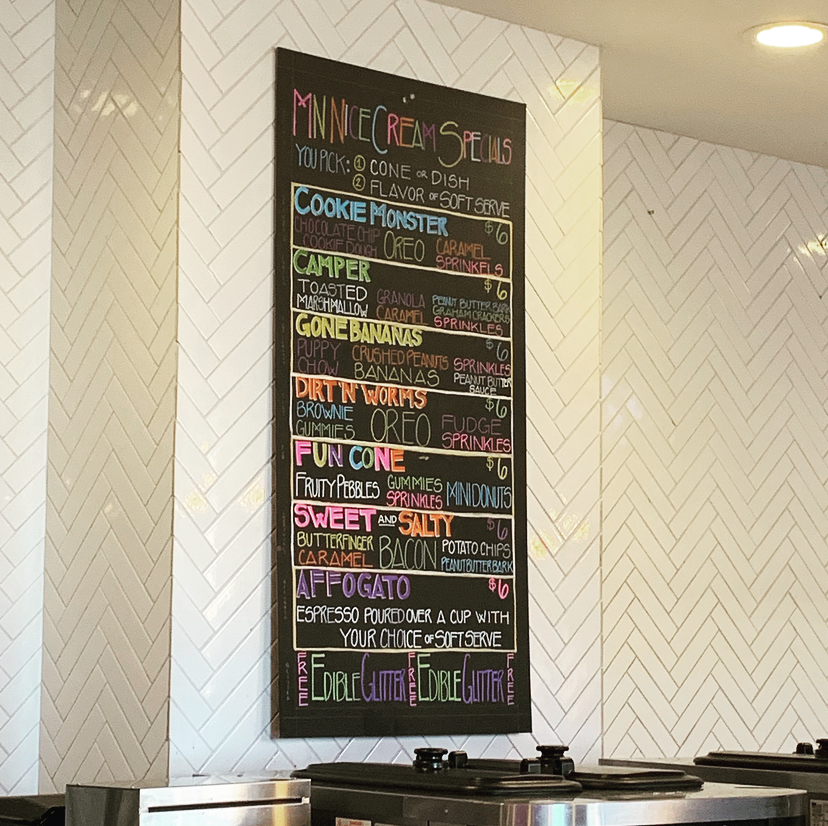 MN NICE CREAM SPECIALS
YOU PICK: ① CONE OR DISH
② FLAVOR OF SOFT SERVE
COOKIE MONSTER $6
CHOCOLATE CHIP COOKIE DOUGH OREO CARAMEL SPRINKELS
CAMPER $6
TOASTED MARSHMALLOW GRANOLA CARAMEL PEANUT BUTTER BARK GRAHAM CRACKERS SPRINKLES
GONE BANANAS $6
PUPPY CHOW CRUSHED PEANUTS BANANAS SPRINKLES PEANUT BUTTER SAUCE
DIRT 'N' WORMS $6
BROWNIE GUMMIES OREO FUDGE SPRINKLES
FUN CONE $6
FRUITY PEBBLES GUMMIES SPRINKLES MINI DONUTS
SWEET AND SALTY $6
BUTTERFINGER CARAMEL BACON POTATO CHIPS PEANUT BUTTER BARK
AFFOGATO $6
ESPRESSO POURED OVER A CUP WITH
YOUR CHOICE OF SOFT SERVE
FREE EDIBLE GLITTER FREE EDIBLE GLITTER FREE